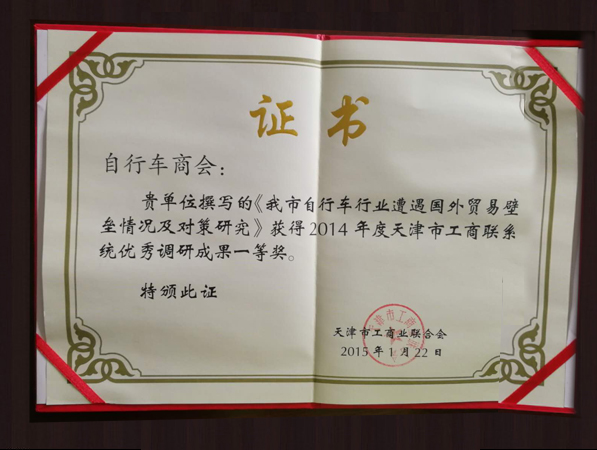 证书
自行车商会：
贵单位撰写的《我市自行车行业遭遇国外贸易壁
垒情况及对策研究》获得2014年度天津市工商联系
统优秀调研成果一等奖。
特颁此证
天津市工商业联合会
2015年1月22日